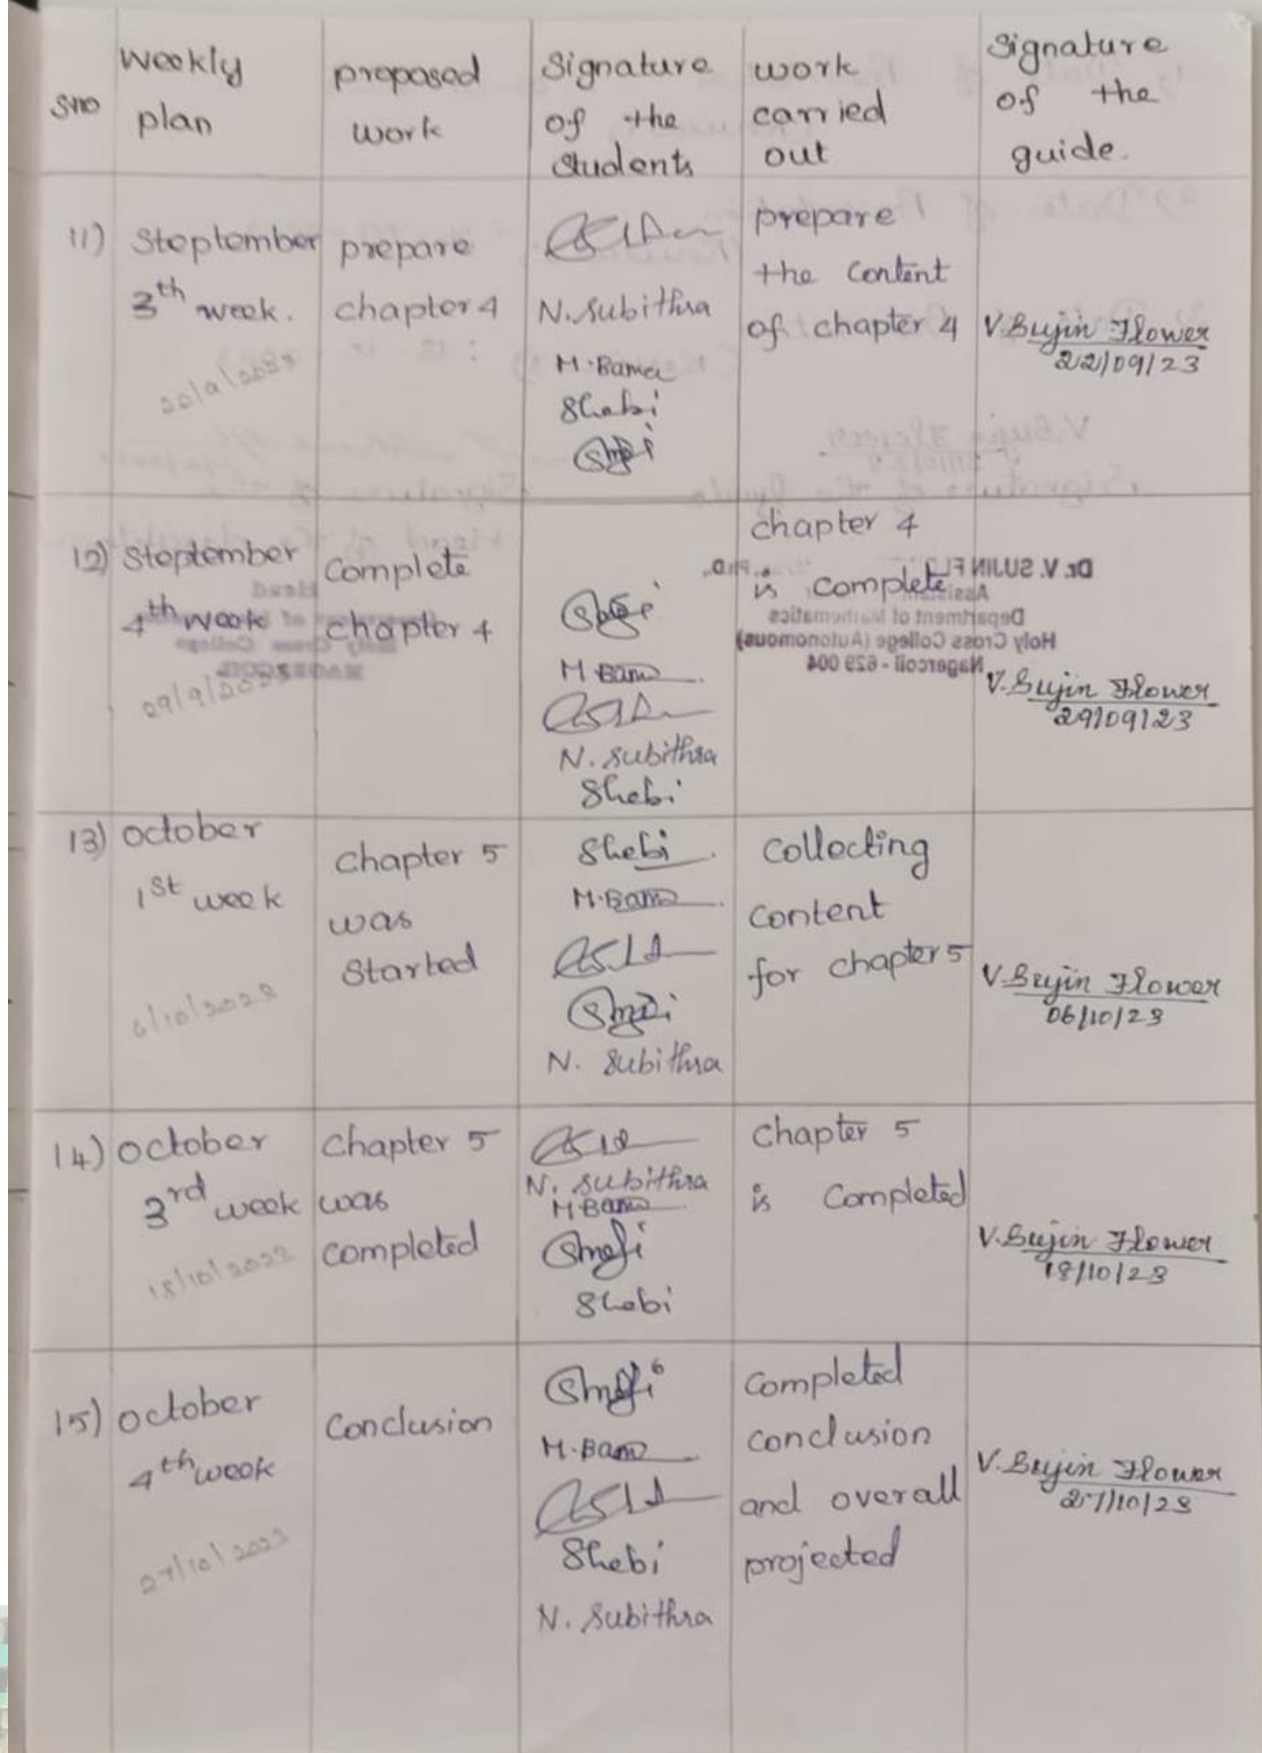 Sno
Weekly
plan
proposed
work
Signature
of the
Students
work
carried
out
Signature
of the
guide.
11)
Steptember
3th week.
22/9/2023
prepare
chapter 4
N. Subithra
M. Bama
Shebi
prepare
the Content
of chapter 4
V. Sujin Flower
22/09/23
12)
Steptember
4th week
29/9/2023
Complete
chapter 4
M Bama
N. Subithra
Shebi
chapter 4
is complete
Dr. V. SUJIN FLOWER
Department of Mathematics
Holy Cross College (Autonomous)
Nagercoil - 629 004
V. Sujin Flower
29/09/23
13)
October
1st week
6/10/2023
Chapter 5
was
Started
Shebi
M. Bama
N. Subithra
Collecting
Content
for chapter 5
V. Sujin Flower
06/10/23
14)
October
3rd week
18/10/2023
Chapter 5
was
completed
N. Subithra
M Bama
Shebi
Chapter 5
is Completed
V. Sujin Flower
18/10/23
15)
October
4th week
27/10/2023
Conclusion
M. Bama
Shebi
N. Subithra
Completed
conclusion
and overall
projected
V. Sujin Flower
27/10/23